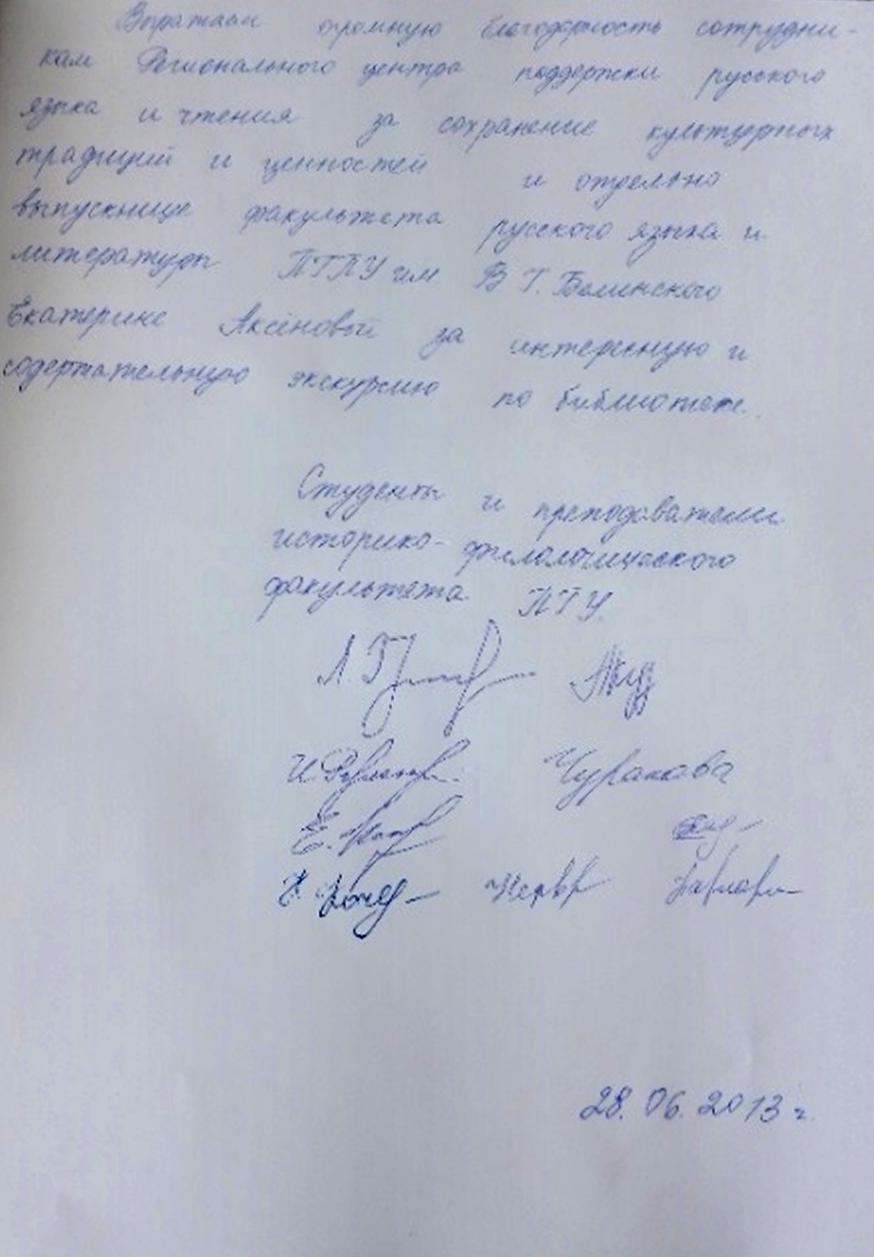 Выражаем огромную благодарность сотрудни-
кам Регионального центра поддержки русского
языка и чтения за сохранение культурных
традиций и ценностей и отдельно
выпускнице факультета русского языка и
литературы ПГПУ им В Г. Белинского
Екатерине Аксёновой за интересную и
содержательную экскурсию по библиотеке.
Студенты и преподаватели
историко-филологического
факультета ПГУ.
Л.
И.
Чуракова
Е.
28.06.2013 г.